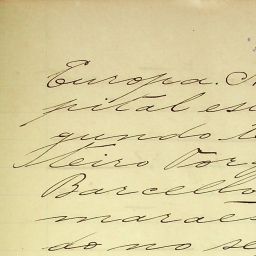 Europa. A
pital es
gundo te
steiro Vorg
Barcello
maraes
do no se